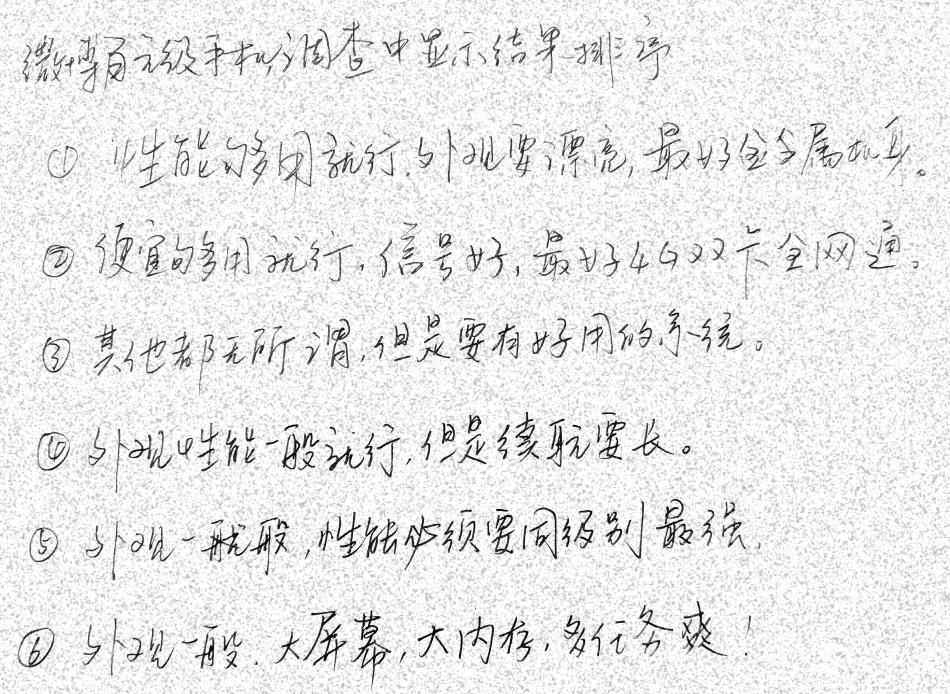 微博百元级手机调查中显示结果排序
① 性能够多用就行,外观要漂亮,最好全金属机身。
② 便宜够多用就行,信号好,最好4G双卡全网通。
③ 其他都无所谓,但是要有好用的系统。
④ 外观性能一般就行,但是续航要长。
⑤ 外观一般般,性能必须要同级别最强,
⑥ 外观一般.大屏幕,大内存,多任务爽!